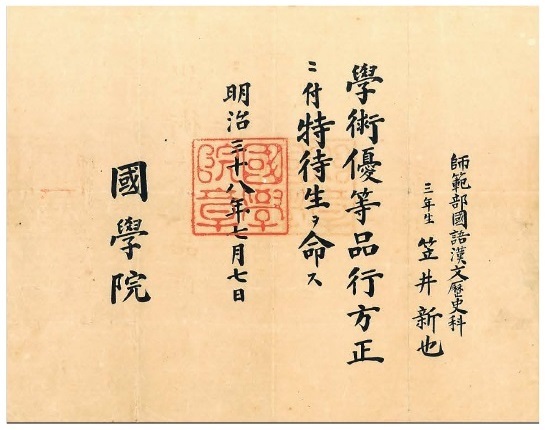 師範部國語漢文歷史科
三年生 笠井新也
學術優等品行方正
ニ付特待生ヲ命ス
明治三十八年七月七日
國學院
國學院章